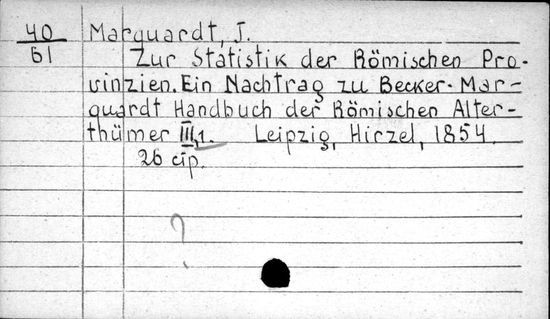 40
Б1
Marquardt, J.
Zur Statistik der Römischen Pro-
vinzien. Ein Nachtrag zu Becker-Mar-
quardt Handbuch der Römischen Alter-
thümer III,1. Leipzig, Hirzel, 1854.
26 стр.
?